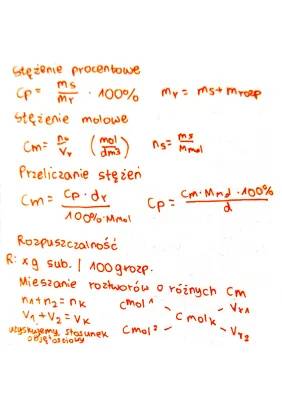 Stężenie procentowe
Cp = ms/mr · 100%   mr = ms + mrozp
Stężenie molowe
Cm = ns/Vr (mol/dm3)   ns = ms/Mmol
Przeliczanie stężeń
Cm = Cp · dr / 100% · Mmol   Cp = Cm · Mmol · 100% / d
Rozpuszczalność
R: xg sub. / 100g rozp.
Mieszanie roztworów o różnych Cm
n1 + n2 = nk
V1 + V2 = Vk
uzyskujemy stosunek
objętościowy
Cmol1 Vr1
Cmolk
Cmol2 Vr2